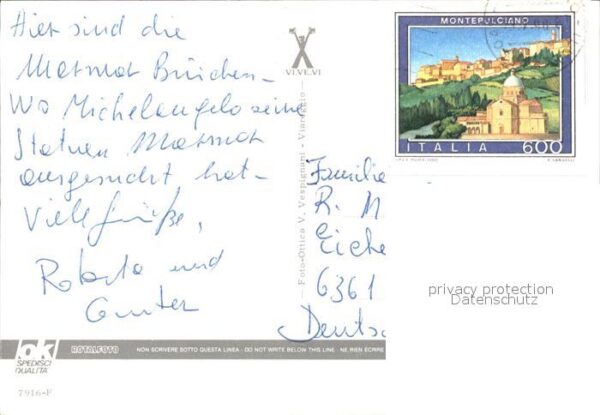 Hier sind die
Marmor Brüchen -
Wo Michelangelo seine
Statuen Marmor
ausgesucht hat -
Viele Grüße,
Roberta und
Gunter
VI.VE.VI
Foto-Ottica V. Vespignani - Viareggio
MONTEPULCIANO
ITALIA 600
Familie
R. M
Eiche
6361
Deutsc
privacy protection
Datenschutz
ok
SPEDISCI
QUALITÀ
ROTALFOTO
NON SCRIVERE SOTTO QUESTA LINEA - DO NOT WRITE BELOW THIS LINE - NE RIEN ÉCRIRE
7916-F